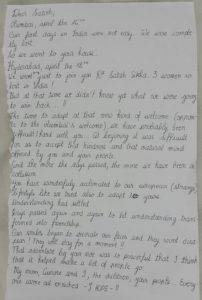 Dear Satish,
Mumbai, april the 16th
Our first days in India were not easy. We were completely
lost.
So we went to your house.
Hyderabad, april the 18th
We went just to join you Satish Sikha. 3 women so
lost in India!
But at that time we didn't know yet what we were going
to win back...!!
The time to adapt at that new kind of welcome
to the Mumbai's welcome), we have probably been
difficult! And with you... At beginning it was difficult
for us to accept this kindness and that natural mind
offered by you and your people.
And the more the days passed, the more we have been
You have wonderfully acclimated to our european (strange)
lifestyle like we tried also to adapt to yours.
Understanding had settled.
Days passed again and again to let understanding transformed
into friendship.
Our smiles began to decorate our faces and they word disappear!
They will stay for a moment!!
That excellence by you was so powerful that I think
that it helped make a lot of people go.
My mum, and I, the children, your people. Every
one came out enriched - I HOPE - !!